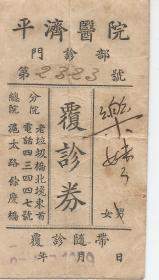 平濟醫院
門診部
第2323號
覆診券
分院 老垃圾橋北堍東首
電話四三四四七號
總院 滬太路餘慶橋
男
女
覆診隨帶
年 月 日